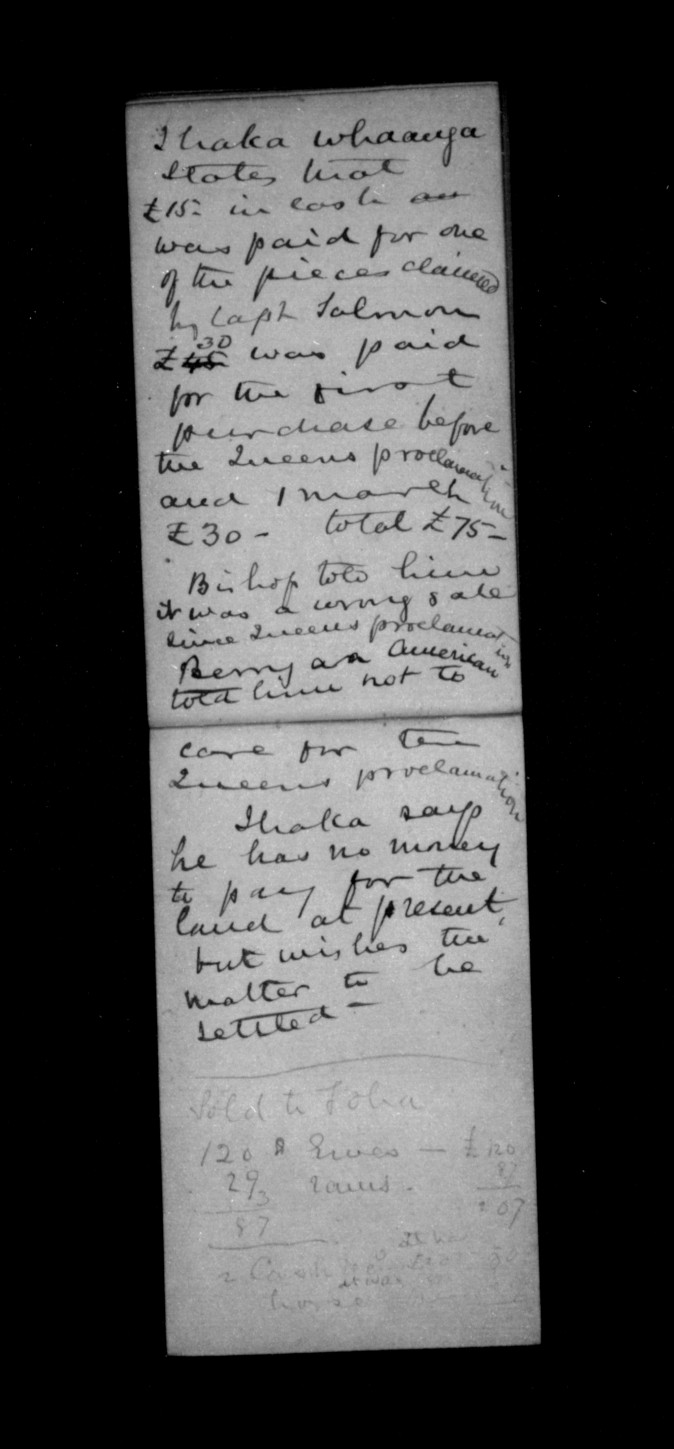 Ihaka Whaanga
States that
£15- in cash an
was paid for one
of the pieces claimed
by Capt Salmon
30
£ 45 was paid
for the first
purchase before
the Queens proclamation
and 1 march
£30- total £75-
Bishop told him
it was a wrong sale
since Queens proclamation
Berry an American
told him not to
care for the
Queens proclamation
Ihaka says
he has no money
to pay for the
land at present,
but wishes the
matter to be
settled-
Sold to
120 Ewes - £120
29 rams. 87
3
87 207
2 Cash
horse